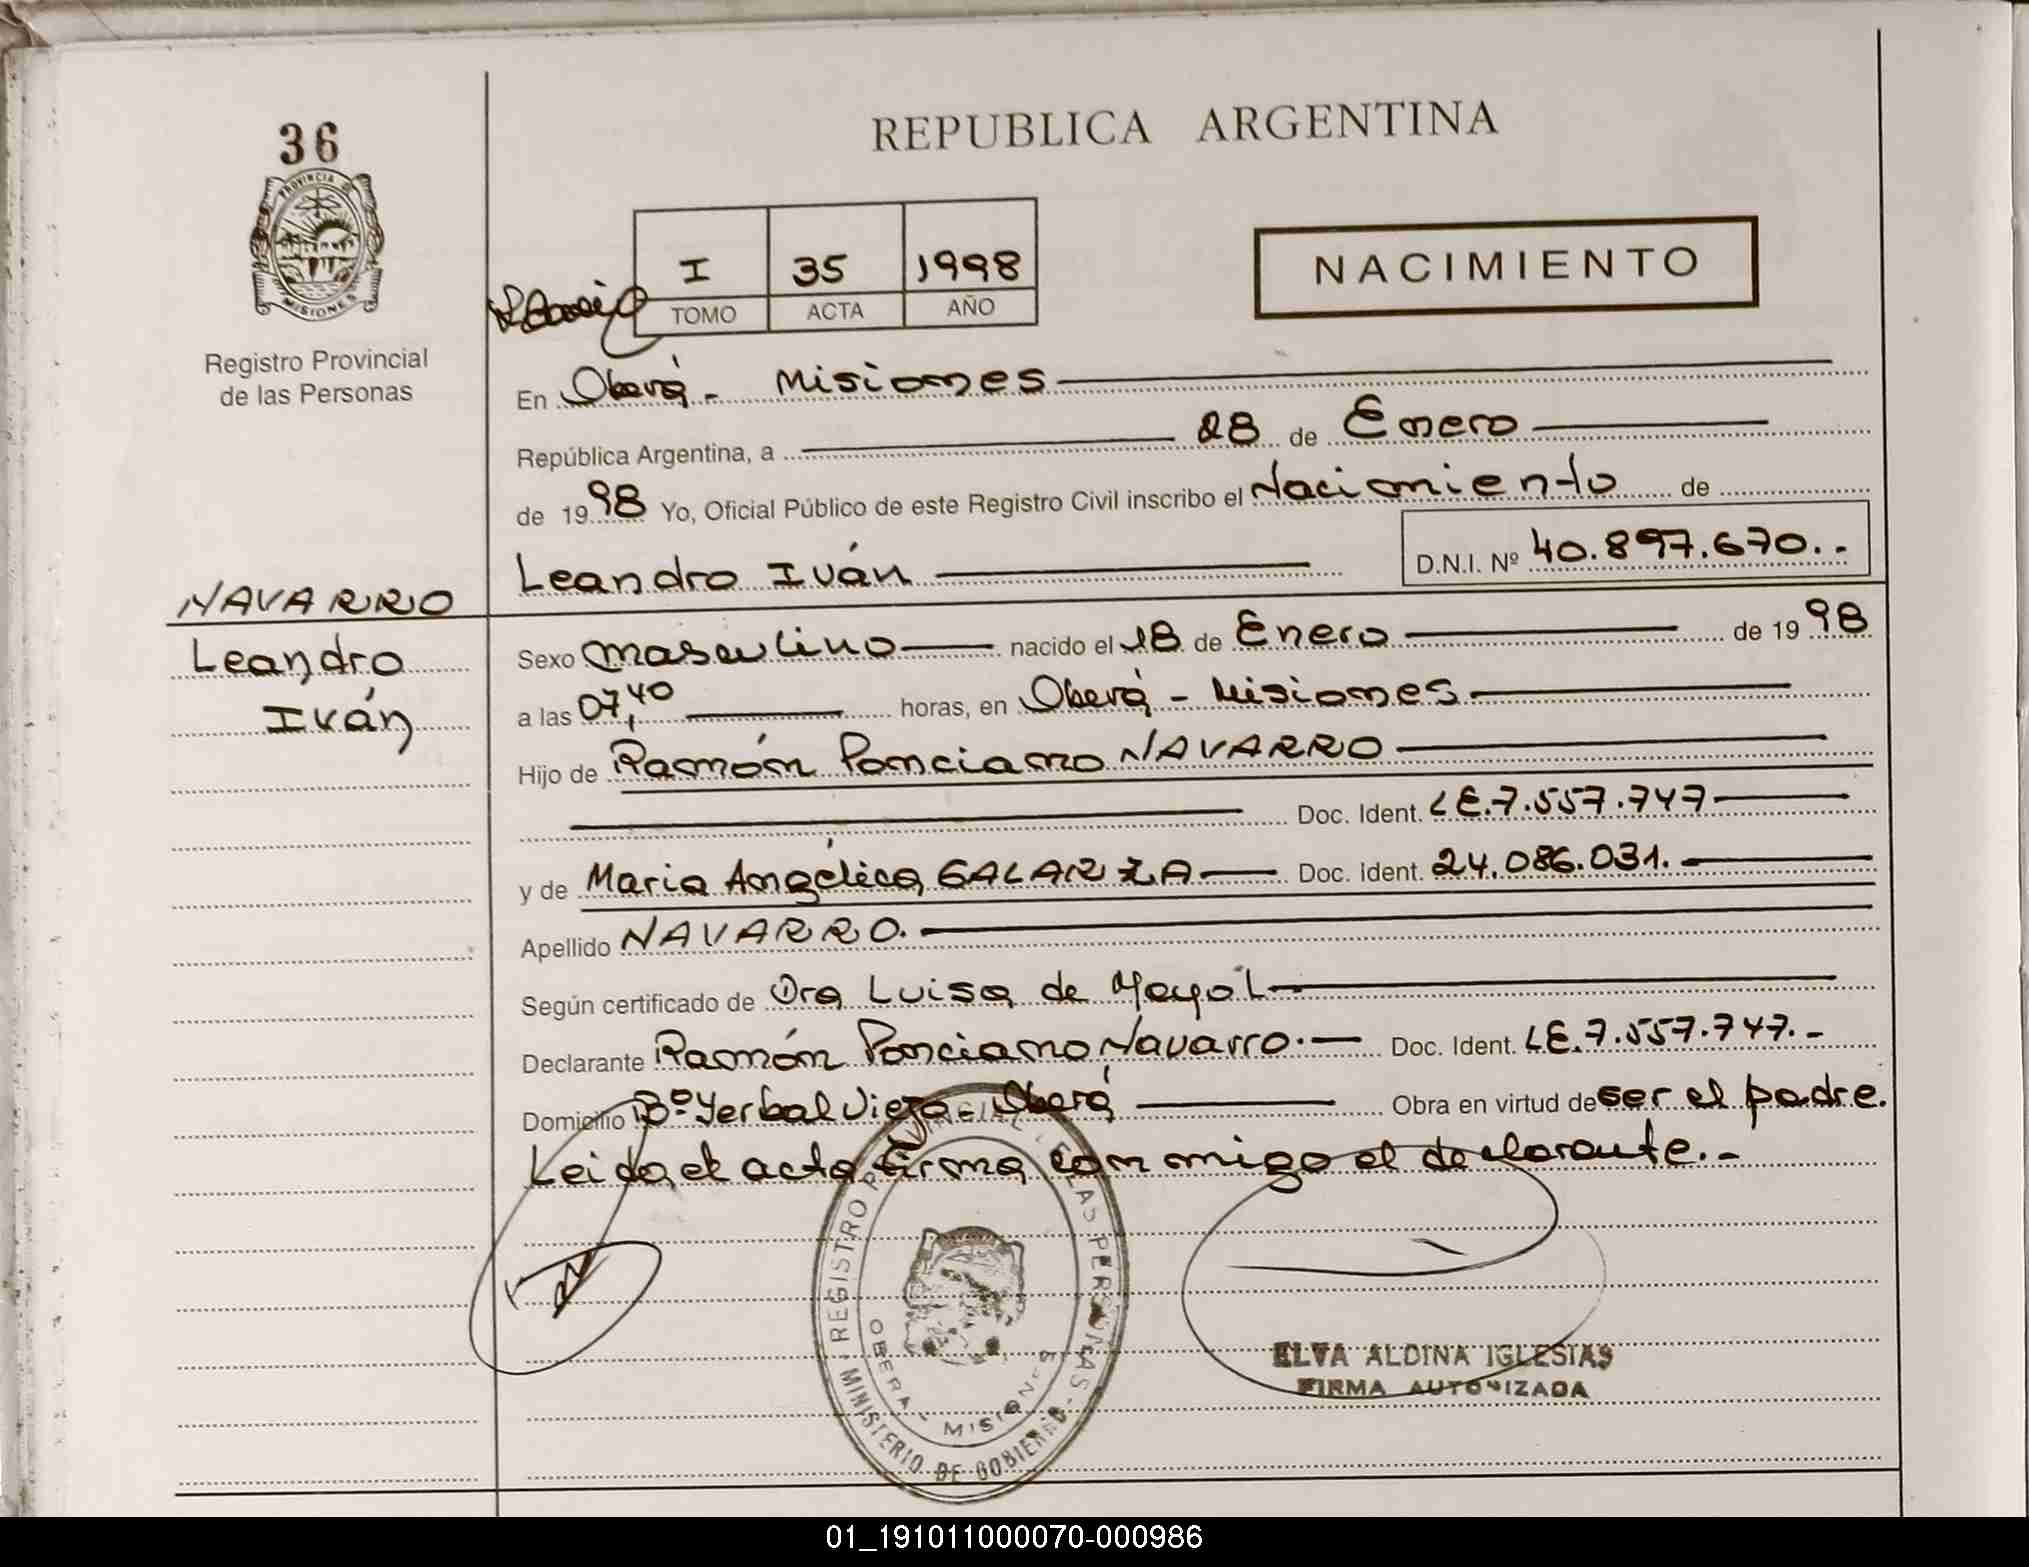 36
PROVINCIA DE
MISIONES
Registro Provincial
de las Personas
NAVARRO
Leandro
Iván
REPUBLICA ARGENTINA
I 35 1998
TOMO ACTA AÑO
NACIMIENTO
En Oberá - Misiones
República Argentina, a 28 de Enero
de 1998 Yo, Oficial Público de este Registro Civil inscribo el Nacimiento de
Leandro Iván D.N.I. Nº 40.897.670.-
Sexo Masculino nacido el 18 de Enero de 1998
a las 07,40 horas, en Oberá - Misiones
Hijo de Ramón Ponciano NAVARRO
Doc. Ident. LE.7.557.747
y de María Angélica GALARZA Doc. Ident. 24.086.031.
Apellido NAVARRO.
Según certificado de Dra Luisa de Mayol
Declarante Ramón Ponciano Navarro.- Doc. Ident. LE.7.557.747.-
Domicilio Bº Yerbal Viejo - Oberá Obra en virtud de ser el padre.
Leida el acta firma conmigo el declarante.-
REGISTRO PROVINCIAL DE LAS PERSONAS
OBERA - MISIONES
MINISTERIO DE GOBIERNO
ELVA ALDINA IGLESIAS
FIRMA AUTORIZADA
01_191011000070-000986